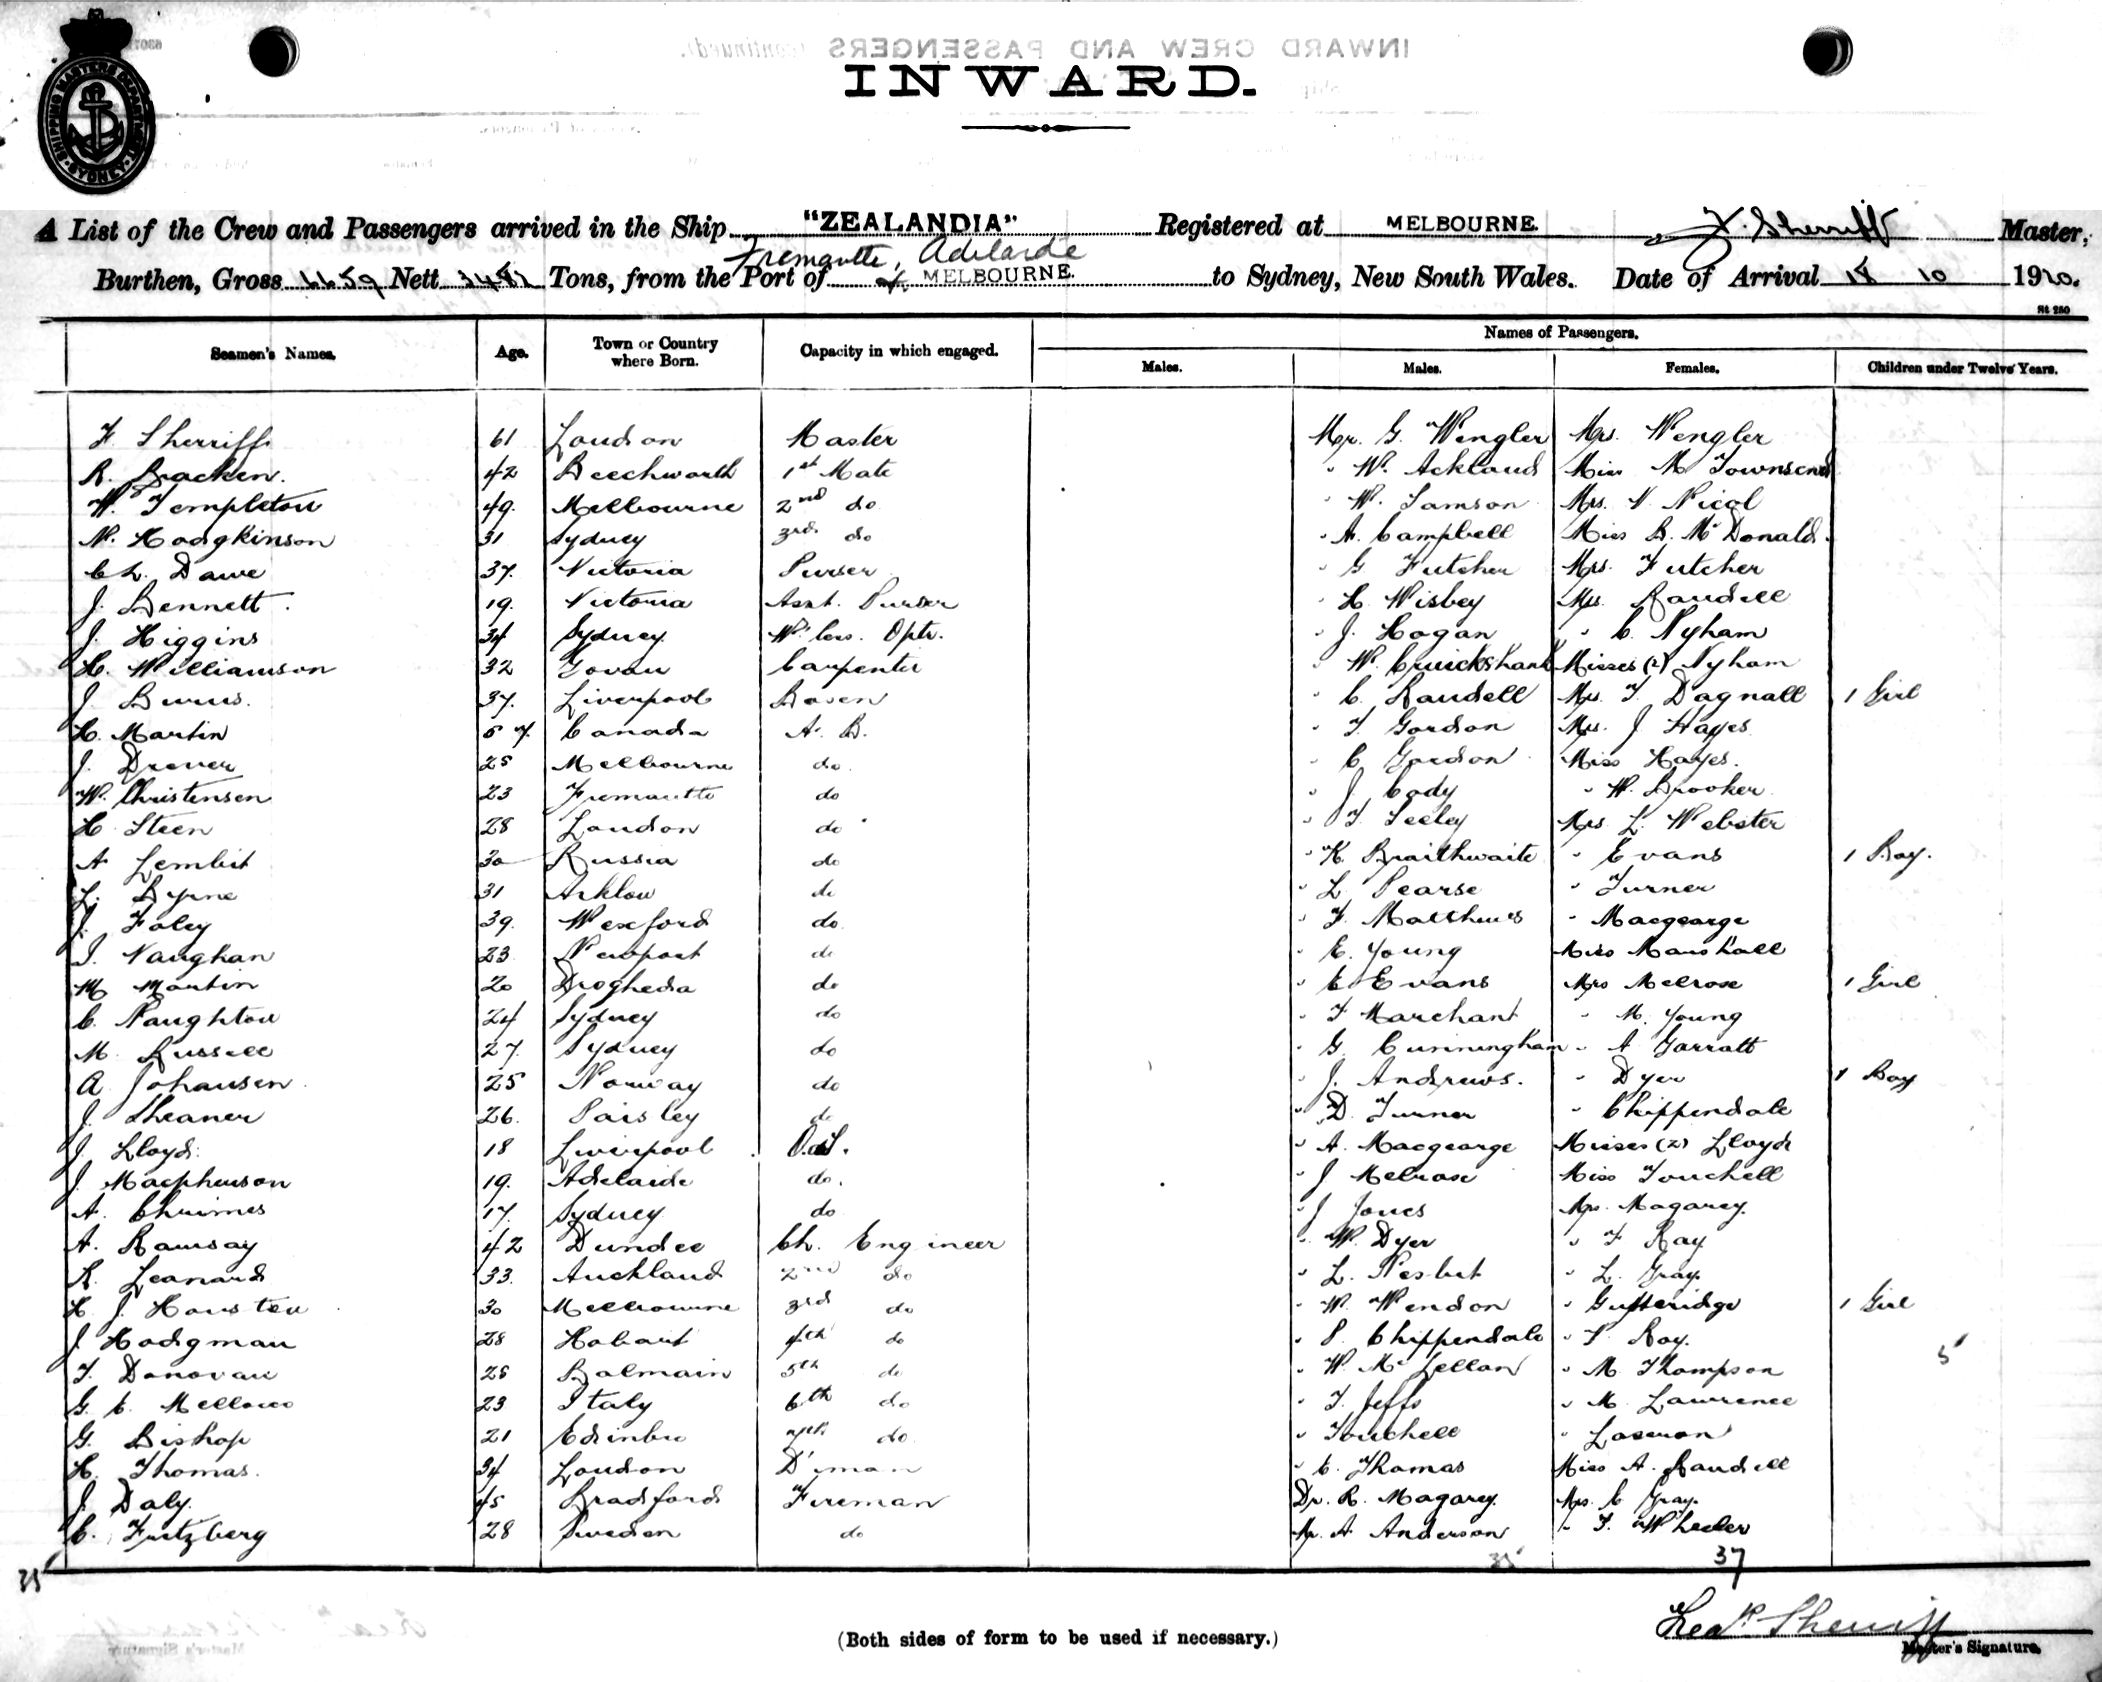 SHIPPING MASTERS DEPARTMENT SYDNEY
INWARD.
A List of the Crew and Passengers arrived in the Ship "ZEALANDIA" Registered at MELBOURNE. F. Sherriff Master,
Fremantle, Adelaide
Burthen, Gross 6659 Nett Tons, from the Port of & MELBOURNE. to Sydney, New South Wales. Date of Arrival 18 10 1920.
St 250
Names of Passengers.
Seamen's Names. Age. Town or Country where Born. Capacity in which engaged. Males. Males. Females. Children under Twelve Years.
F. Sherriff 61 London Master Mr. G. Wengler Mrs. Wengler
R. Bracken. 42 Beechworth 1st Mate " W. Ackland Miss M Townsend
W. Templeton 49. Melbourne 2nd do " W. Samson Mrs. N. Nicol
N. Hodgkinson 31 Sydney 3rd do " A. Campbell Miss B. McDonald.
Ch. Dawe 37. Victoria Purser " G Futcher Mrs. Futcher
J. Bennett. 19. Victoria Asst. Purser " H. Wisbey Mrs. Randell
J. Higgins 34 Sydney W'less. Optr. " J. Hogan " " C. Nyham
H. Williamson 32 Govan Carpenter " W. Cruickshank Misses (2) Nyham
J. Burns. 37. Liverpool Bosen " C. Randell Mrs. T. Dagnall 1 Girl
H. Martin 57. Canada A. B. " T. Gordon Mrs. J Hayes
J. Drever 25 Melbourne do. " C Gordon Miss Hayes.
W. Christensen 23 Fremantle do " J. Cody " W. Brooker
H. Steen 28 London do " T Seeley Mrs L. Webster
A Lembit 30 Russia do " K. Braithwaite " Evans 1 Boy.
L. Byrne 31 Arklow do " L Pearse " Turner
J. Foley 39. Wexford do. " F. Matthews " Macgearge
J. Vaughan 23 Newport do " E. Young Miss Marshall
M Martin 20 Drogheda do " E Evans Mrs Melrose 1 Girl
C. Naughton 24 Sydney do " F Marchant " M. Young
M. Russell 27. Sydney do " G. Cunningham " A Garratt
A. Johansen 25 Norway do " J. Andrews. " Dyer 1 Boy
J. Sheaner 26. Paisley do " D. Turner " Chippendale
J. Lloyd. 18 Liverpool O.S. " A. Macgearge Misses (2) Lloyd
J. Macpherson 19. Adelaide do. " J Melrose Miss Touchell
A. Chrimes 17. Sydney do " J Jones Mrs. Magarey.
A. Ramsay 42 Dundee Ch. Engineer " W. Dyer " F Ray
R. Leonard 33. Auckland 2nd do " L. Nesbit " L. Gray.
H J. Houston 30 Melbourne 3rd do " W. Wendon " Gutteridge 1 Girl
J Hodgman 28 Hobart 4th do " P. Chippendale " T. Roy. 5
T. Donovan 25 Balmain 5th do " W. McLellan " M Thompson
G. C. 23 Italy 6th do " T. Jeffs " M. Lawrence
G. Bishop 21 Edinbro 7th do. " Touchell "
H. Thomas. 34 London D'man " C. Thomas Miss A. Randell
J. Daly. 45 Bradford Fireman Dr. R. Magarey. Mrs. C Gray.
C. Fritzberg 28 Sweden do Mr. A. Anderson " T. Wheeler
35 35 37
Fredk. Sherriff
(Both sides of form to be used if necessary.)
Master's Signature.